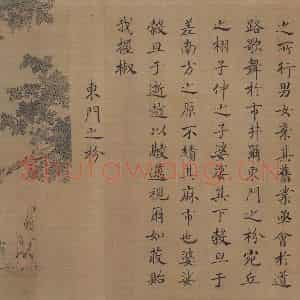 之所行男女棄其舊業亟會於道
路歌舞於市井爾東門之枌宛丘
之栩子仲之子婆娑其下穀旦于
差南方之原不績其麻市也婆娑
穀旦于逝越以鬷邁視爾如荍貽
我握椒
東門之枌
Shufawang.CN